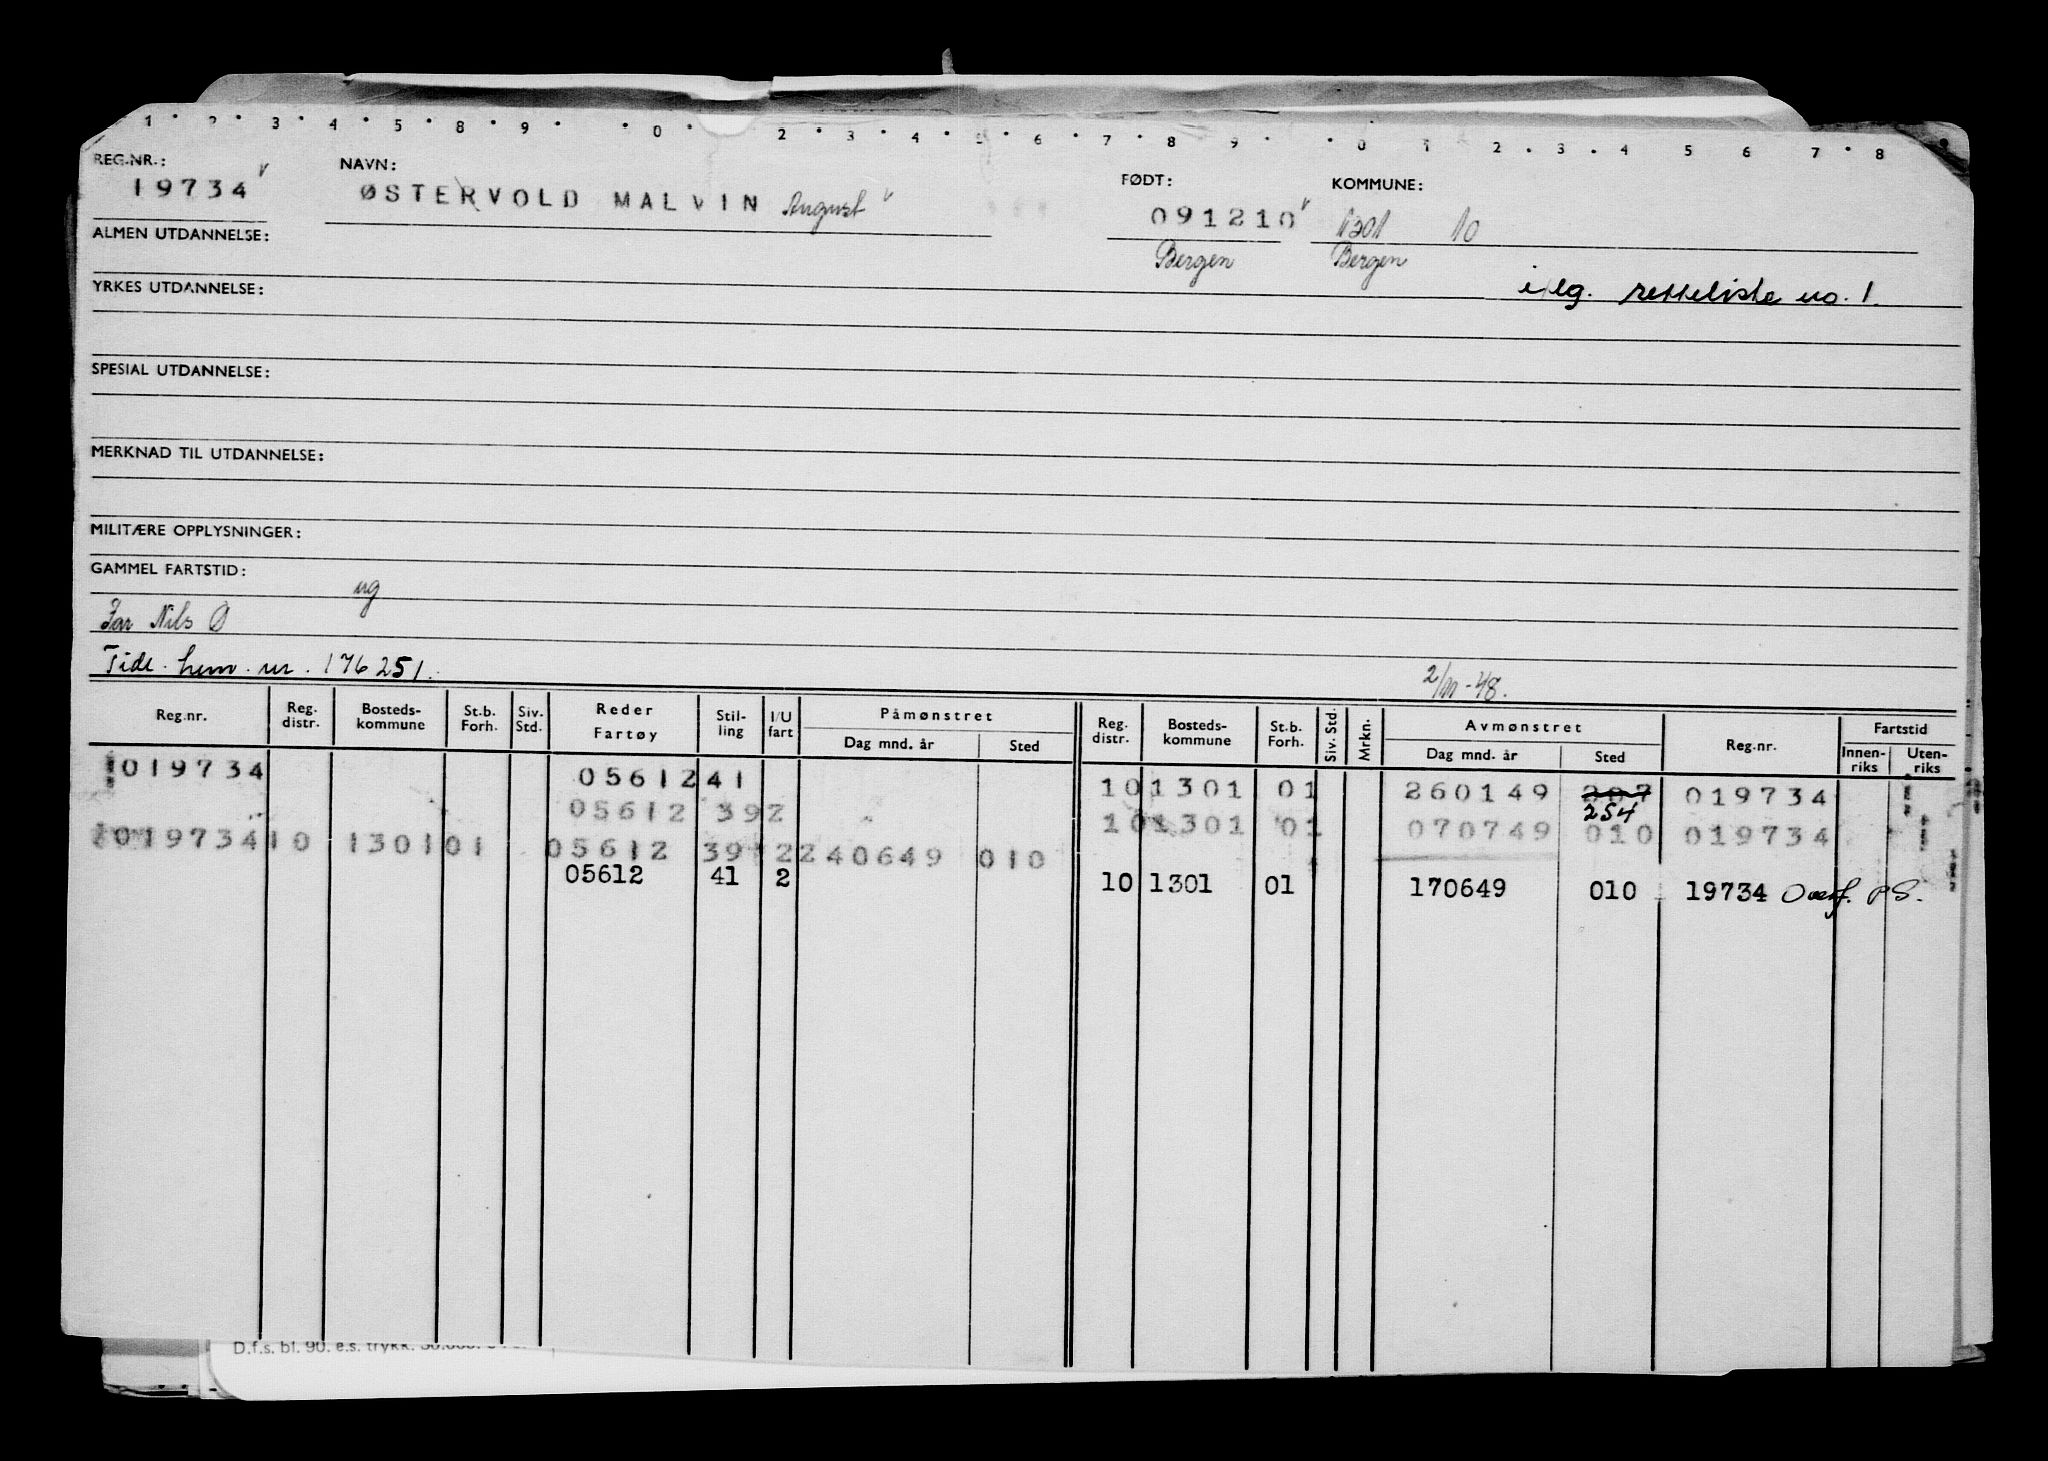 1 · 2 · 3 · 4 · 5 · 8 · 9 · · 0 · 2 · 3 · 4 · 5 · 6 · 7 · 8 9 · · 0 1 2 · 3 · 4 5 6 7 · 8
REG.NR.: NAVN: FØDT: KOMMUNE:
19734 ØSTERVOLD MALVIN August 091210 1301 10
ALMEN UTDANNELSE: Bergen Bergen
YRKES UTDANNELSE: iflg. retteliste no. 1.
SPESIAL UTDANNELSE:
MERKNAD TIL UTDANNELSE:
MILITÆRE OPPLYSNINGER:
GAMMEL FARTSTID: ug
Far Nils Ø
Tidl. hem. nr. 176251. 2/11-48.
Reg.nr. Reg. distr. Bosteds-kommune St.b. Forh. Siv. Std. Reder Fartøy Stil-ling I/U fart Påmønstret Dag mnd. år Sted Reg. distr. Bosteds-kommune St.b. Forh. Siv. Std. Mrkn. Avmønstret Dag mnd. år Sted Reg.nr. Fartstid Innen-riks Uten-riks
019734 05612 41 10 1301 01 260149 207 254 019734
05612 39 2 10 1301 01 070749 010 019734
019734 10 1301 01 05612 39 2 240649 010
05612 41 2 10 1301 01 170649 010 19734 Overf. PS.
D.f.s. bl. 90. e.s. trykk.